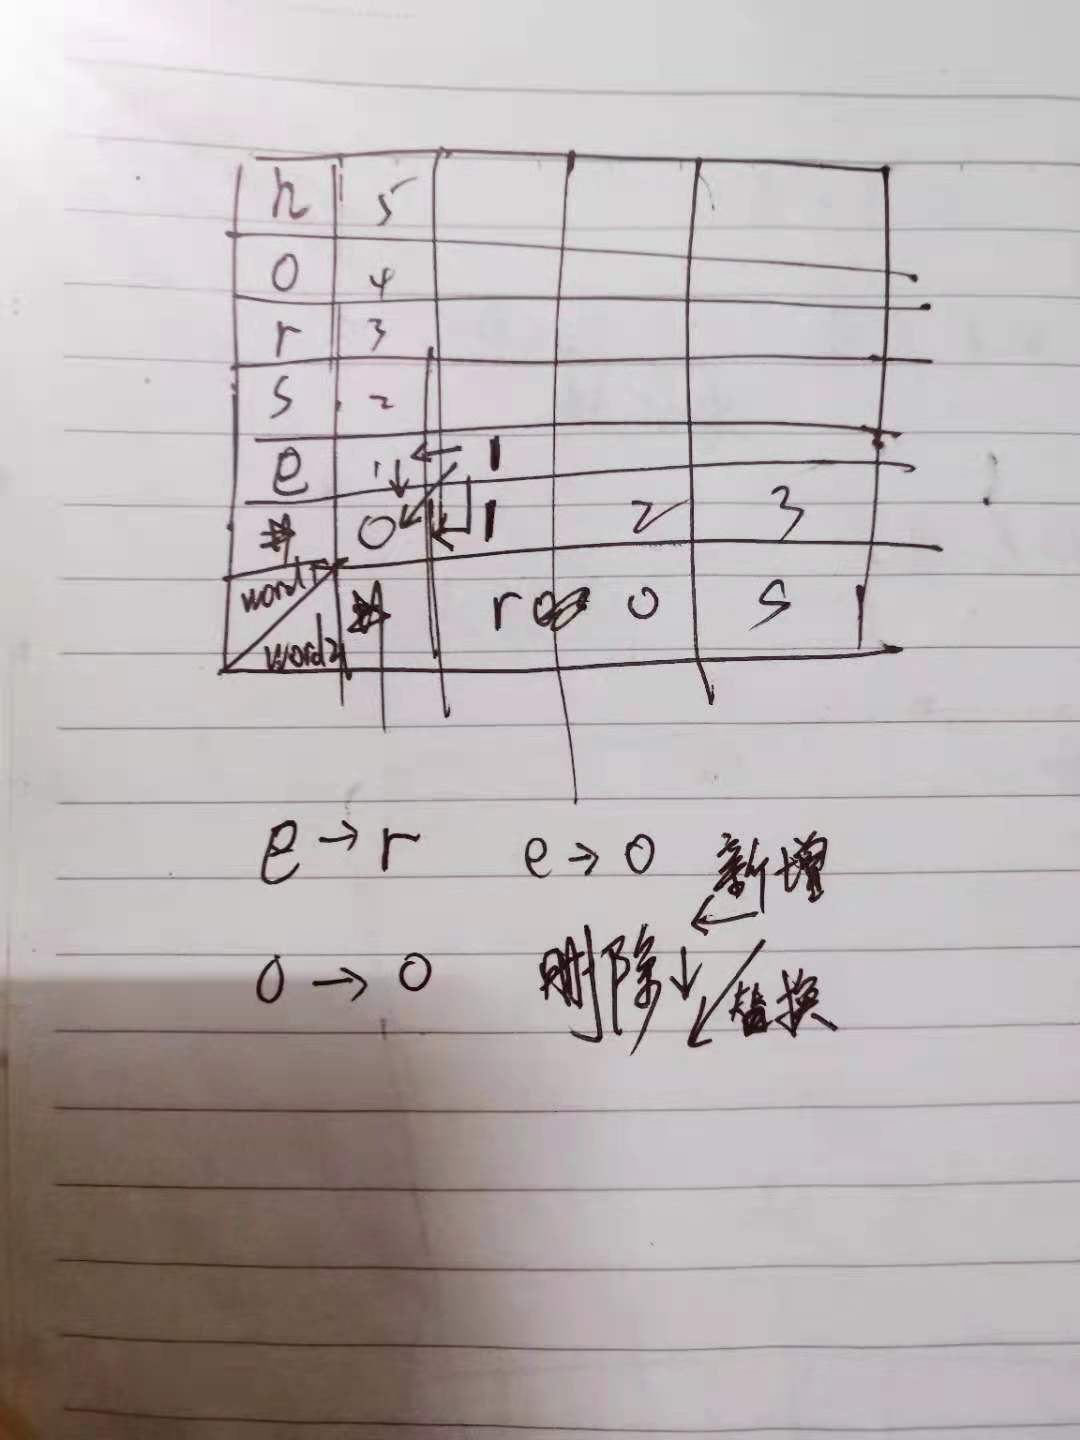 h 5
o 4
r 3
s 2
e 1 ← 1
# 0 1 2 3
word1 # r o s
word2
e → r e → o 新增
←
o → o 删除 ↓ ↙ 替换